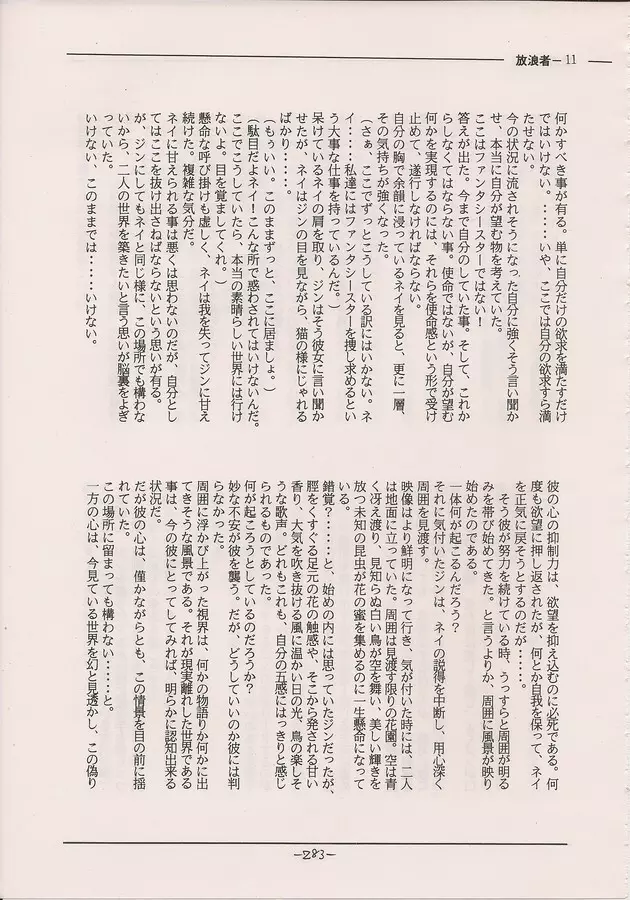 放浪者－11
何かすべき事が有る。単に自分だけの欲求を満たすだけ
ではいけない。・・・・・いや、ここでは自分の欲求すら満
たせない。
今の状況に流されそうになった自分に強くそう言い聞か
せ、本当に自分が望む物を考えていた。
ここはファンタシースターではない！
答えが出た。今まで自分のしていた事。そして、これか
らしなくてはならない事。使命ではないが、自分が望む
何かを実現するのには、それらを使命感という形で受け
止めて、遂行しなければならない。
自分の胸で余韻に浸っているネイを見ると、更に一層、
その気持ちが強くなった。
（さぁ、ここでずっとこうしている訳にはいかない。ネ
イ・・・・私達にはファンタシースターを捜し求めるとい
う大事な仕事を持っているんだ。）
呆けているネイの肩を取り、ジンはそう彼女に言い聞か
せたが、ネイはジンの目を見ながら、猫の様にじゃれる
ばかり・・・・。
（もぅいい。このままずっと、ここに居ましょ。）
（駄目だよネイ！こんな所で惑わされてはいけないんだ。
ここでこうしていたら、本当の素晴らしい世界には行け
ないよ。目を覚ましてくれ。）
懸命な呼び掛けも虚しく、ネイは我を失ってジンに甘え
続けた。複雑な気分だ。
ネイに甘えられる事は悪くは思わないのだが、自分とし
てはここを抜け出さねばならないという思いが有る。
が、ジンにしてもネイと同じ様に、この場所でも構わな
いから、二人の世界を築きたいと言う思いが脳裏をよぎ
っていた。
いけない、このままでは・・・・いけない。
彼の心の抑制力は、欲望を抑え込むのに必死である。何
度も欲望に押し返されたが、何とか自我を保って、ネイ
を正気に戻そうとするのだが・・・・・。
そう彼が努力を続けている時、うっすらと周囲が明る
みを帯び始めてきた。と言うよりか、周囲に風景が映り
始めたのである。
一体何が起こるんだろう？
それに気付いたジンは、ネイの説得を中断し、用心深く
周囲を見渡す。
映像はより鮮明になって行き、気が付いた時には、二人
は地面に立っていた。周囲は見渡す限りの花園。空は青
く冴え渡り、見知らぬ白い鳥が空を舞い、美しい輝きを
放つ未知の昆虫が花の蜜を集めるのに一生懸命になって
いる。
錯覚？・・・・・と、始めの内には思っていたジンだったが、
脛をくすぐる足元の花の触感や、そこから発される甘い
香り、大気を吹き抜ける風に温かい日の光、鳥の楽しそ
うな歌声。どれもこれも、自分の五感にはっきりと感じ
られるものであった。
何が起ころうとしているのだろうか？
妙な不安が彼を襲う。だが、どうしていいのか彼には判
らなかった。
周囲に浮かび上がった視界は、何かの物語りか何かに出
てきそうな風景である。それが現実離れした世界である
事は、今の彼にとってしてみれば、明らかに認知出来る
状況だ。
だが彼の心は、僅かながらとも、この情景を目の前に揺
れていた。
この場所に留まっても構わない・・・・・と。
一方の心は、今見ている世界を幻と見透かし、この偽り
－283－